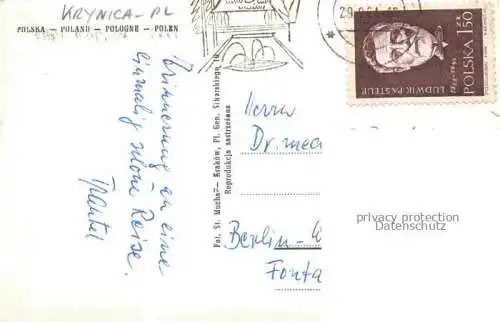 KRYNICA-PL
POLSKA — POLAND — POLOGNE — POLEN
Erinnerung an eine
einmalig schöne Reise.
Fot. St. Mucha — Kraków, Pl. Gen. Sikorskiego 10
Reprodukcja zastrzeżona
POLSKA 1,50 ZŁ
LUDWIK PASTEUR
Herrn
Dr. med
Berlin-
Fonta
privacy protection
Datenschutz